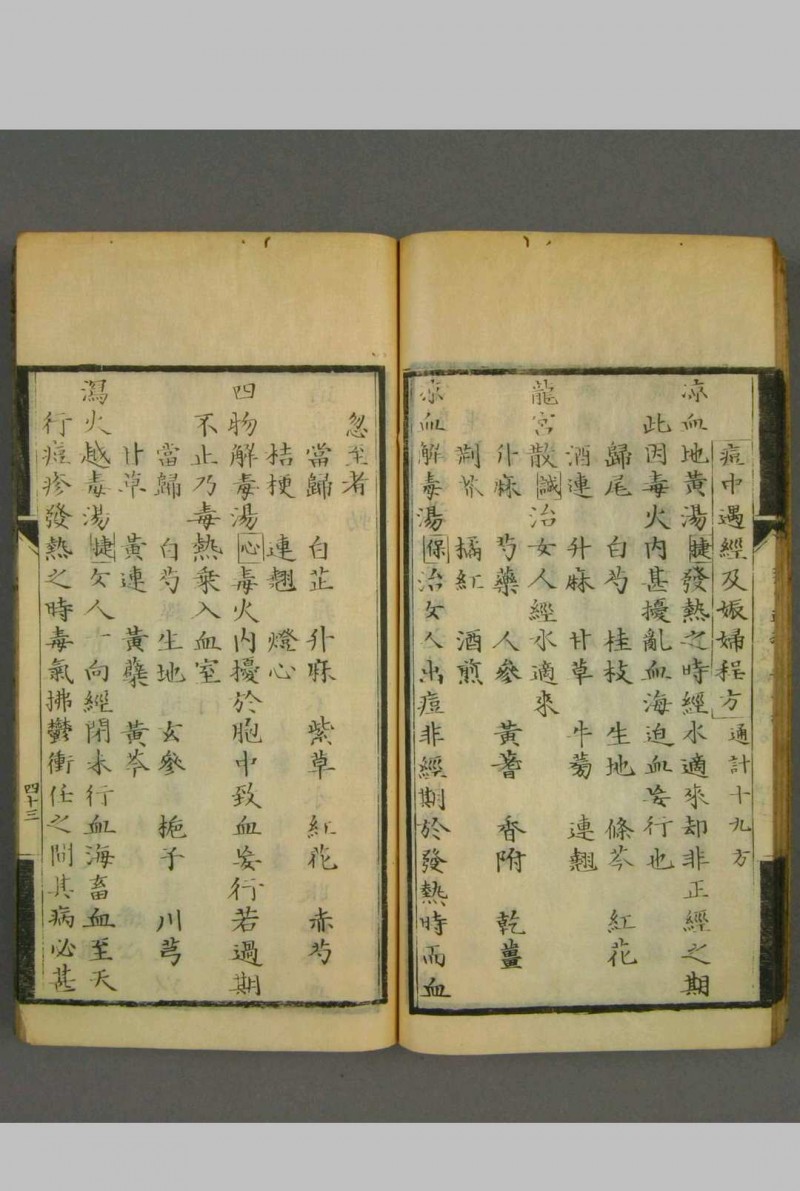 痘中遇經及娠婦程方 通計十九方
凉血地黃湯捷發熱之時經水適來却非正經之期
此因毒火內甚擾亂血海迫血妄行也
歸尾 白芍 桂枝 生地 條芩 紅花
酒連 升麻 甘草 牛蒡 連翹
龍宮散誠治女人經水適來
升麻 芍藥 人參 黃蓍 香附 乾薑
荊芥 橘紅 酒煎
凉血解毒湯保治女人出痘非經期於發熱時而血
忽至者
當歸 白芷 升麻 紫草 紅花 赤芍
桔梗 連翹 燈心
四物解毒湯心毒火內擾於胞中致血妄行若過期
不止乃毒熱乘入血室
當歸 白芍 生地 玄參 梔子 川芎
甘草 黃連 黃蘗 黃芩
瀉火越毒湯捷女人一向經閉未行血海畜血至天
行痘疹發熱之時毒氣拂鬱衝任之間其病必甚
四十三